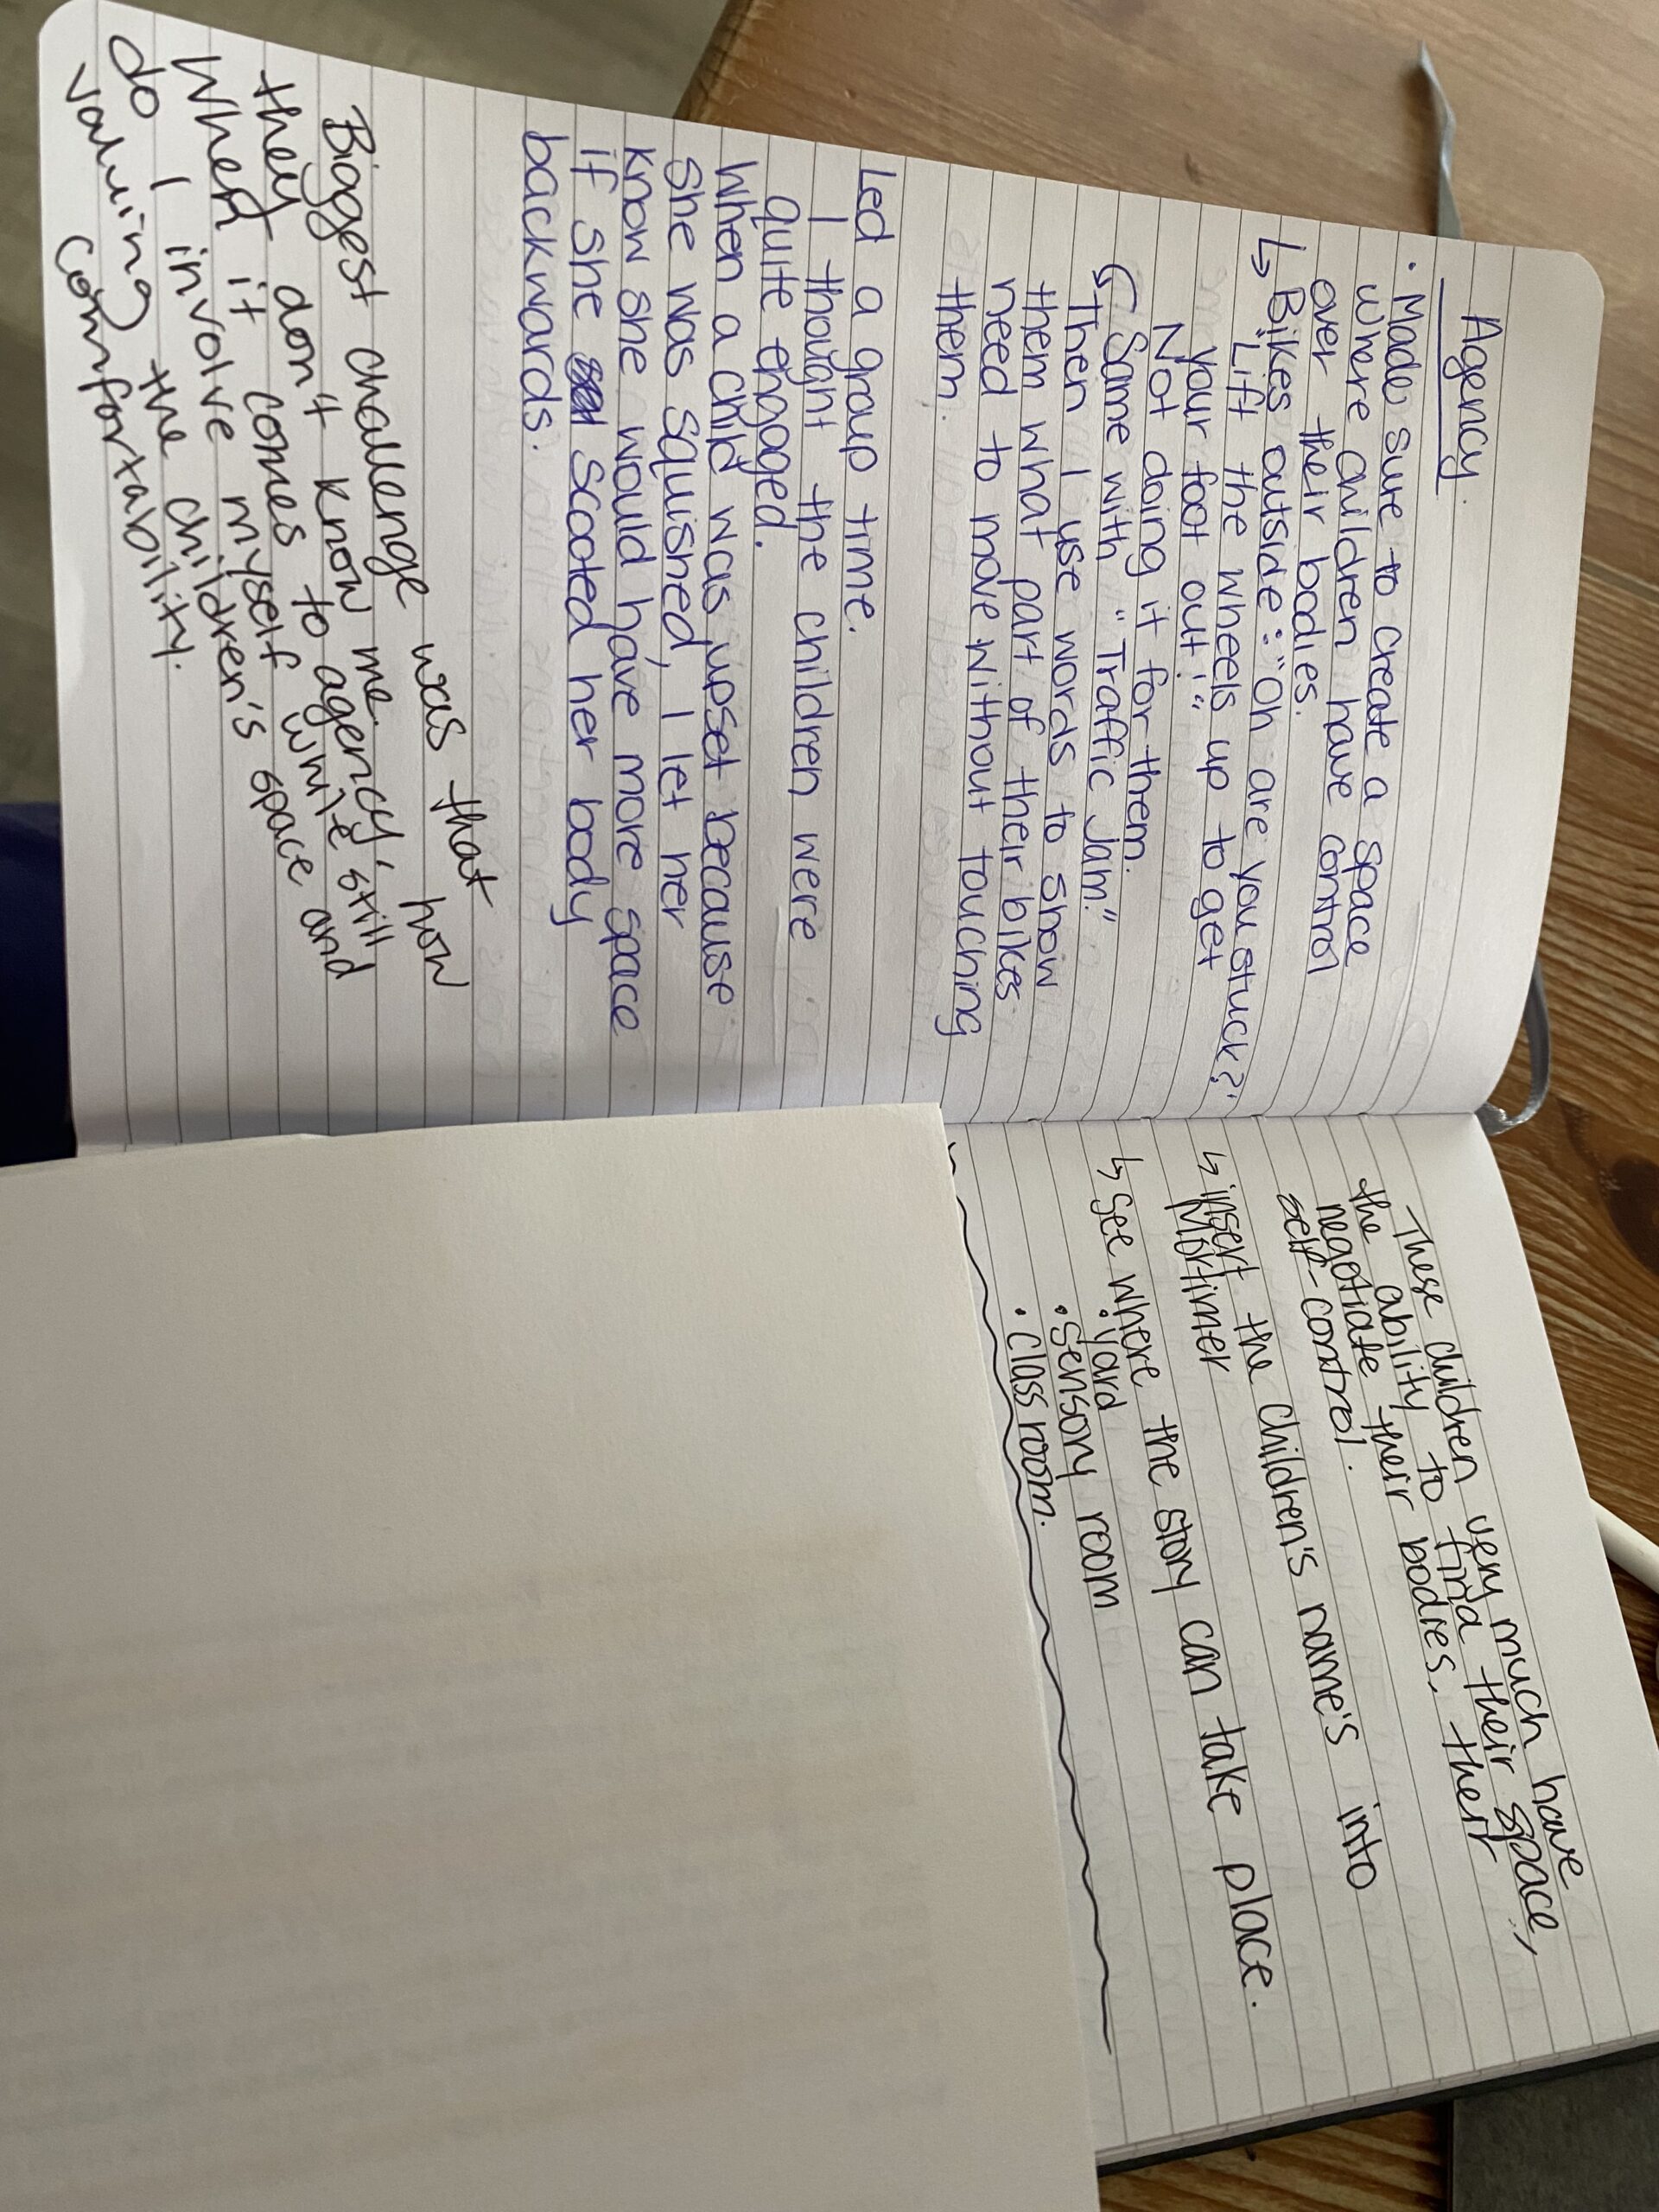 Agency.
· Made sure to create a space
where children have control
over their bodies.
↳ Bikes outside: "Oh are you stuck?"
"Lift the wheels up to get
your foot out!"
Not doing it for them.
↳ Same with "Traffic Jam."
Then I use words to show
them what part of their bikes
need to move without touching
them.
Led a group time.
I thought the children were
quite engaged.
When a child was upset because
she was squished, I let her
know she would have more space
if she scooted her body
backwards.
Biggest challenge was that
they don't know me. how
When it comes to agency,
do I involve myself while still
valuing the children's space and
comfortability.
These children very much have
the ability to find their space,
negotiate their bodies, their
self-control.
↳ insert the children's name's into
Mortimer
↳ see where the story can take place.
· yard
· sensory room
· classroom.